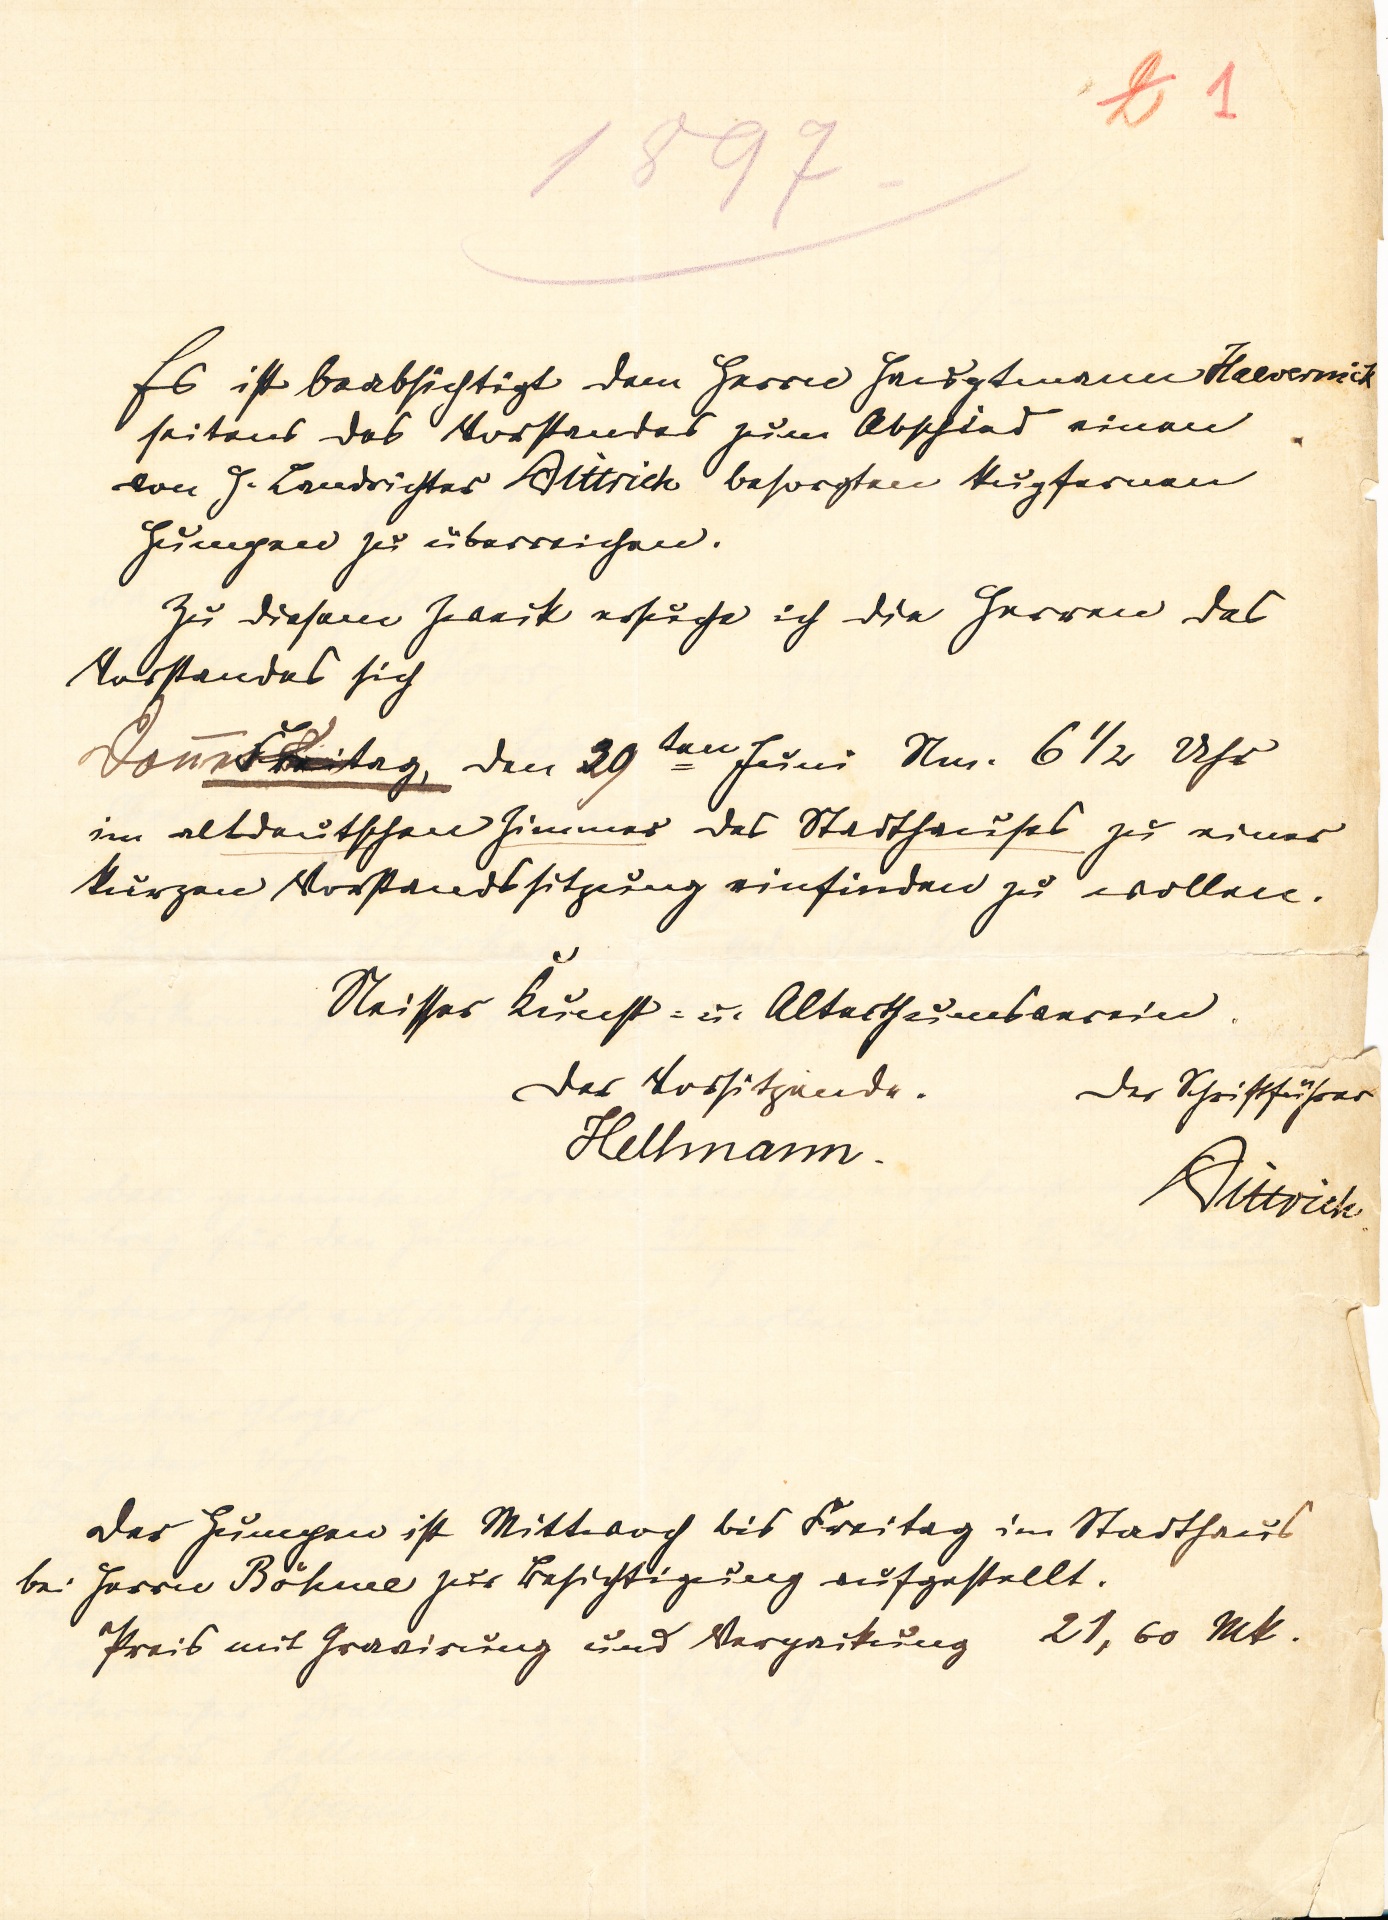 1
1897.
Es ist beabsichtigt dem Herrn Hauptmann Haevernick
seitens des Vorstandes zum Abschied einen
von H. Landrichter Dittrich besorgten kupfernen
Humpen zu überreichen.
Zu diesem Zweck ersuche ich die Herren des
Vorstandes sich
Freitag, den ten Juni Nm. 6 1/2 Uhr
im altdeutschen Zimmer des Stadthauses zu einer
kurzen Vorstandssitzung einfinden zu wollen.
Neisser Kunst- u. Alterthumsverein.
Der Vorsitzende. Der Schriftführer
Hellmann. Dittrich.
Der Humpen ist Mittwoch bis Freitag im Stadthaus
bei Herrn Böhme zur Besichtigung aufgestellt.
Preis mit Gravirung und Verpackung 21,60 Mk.